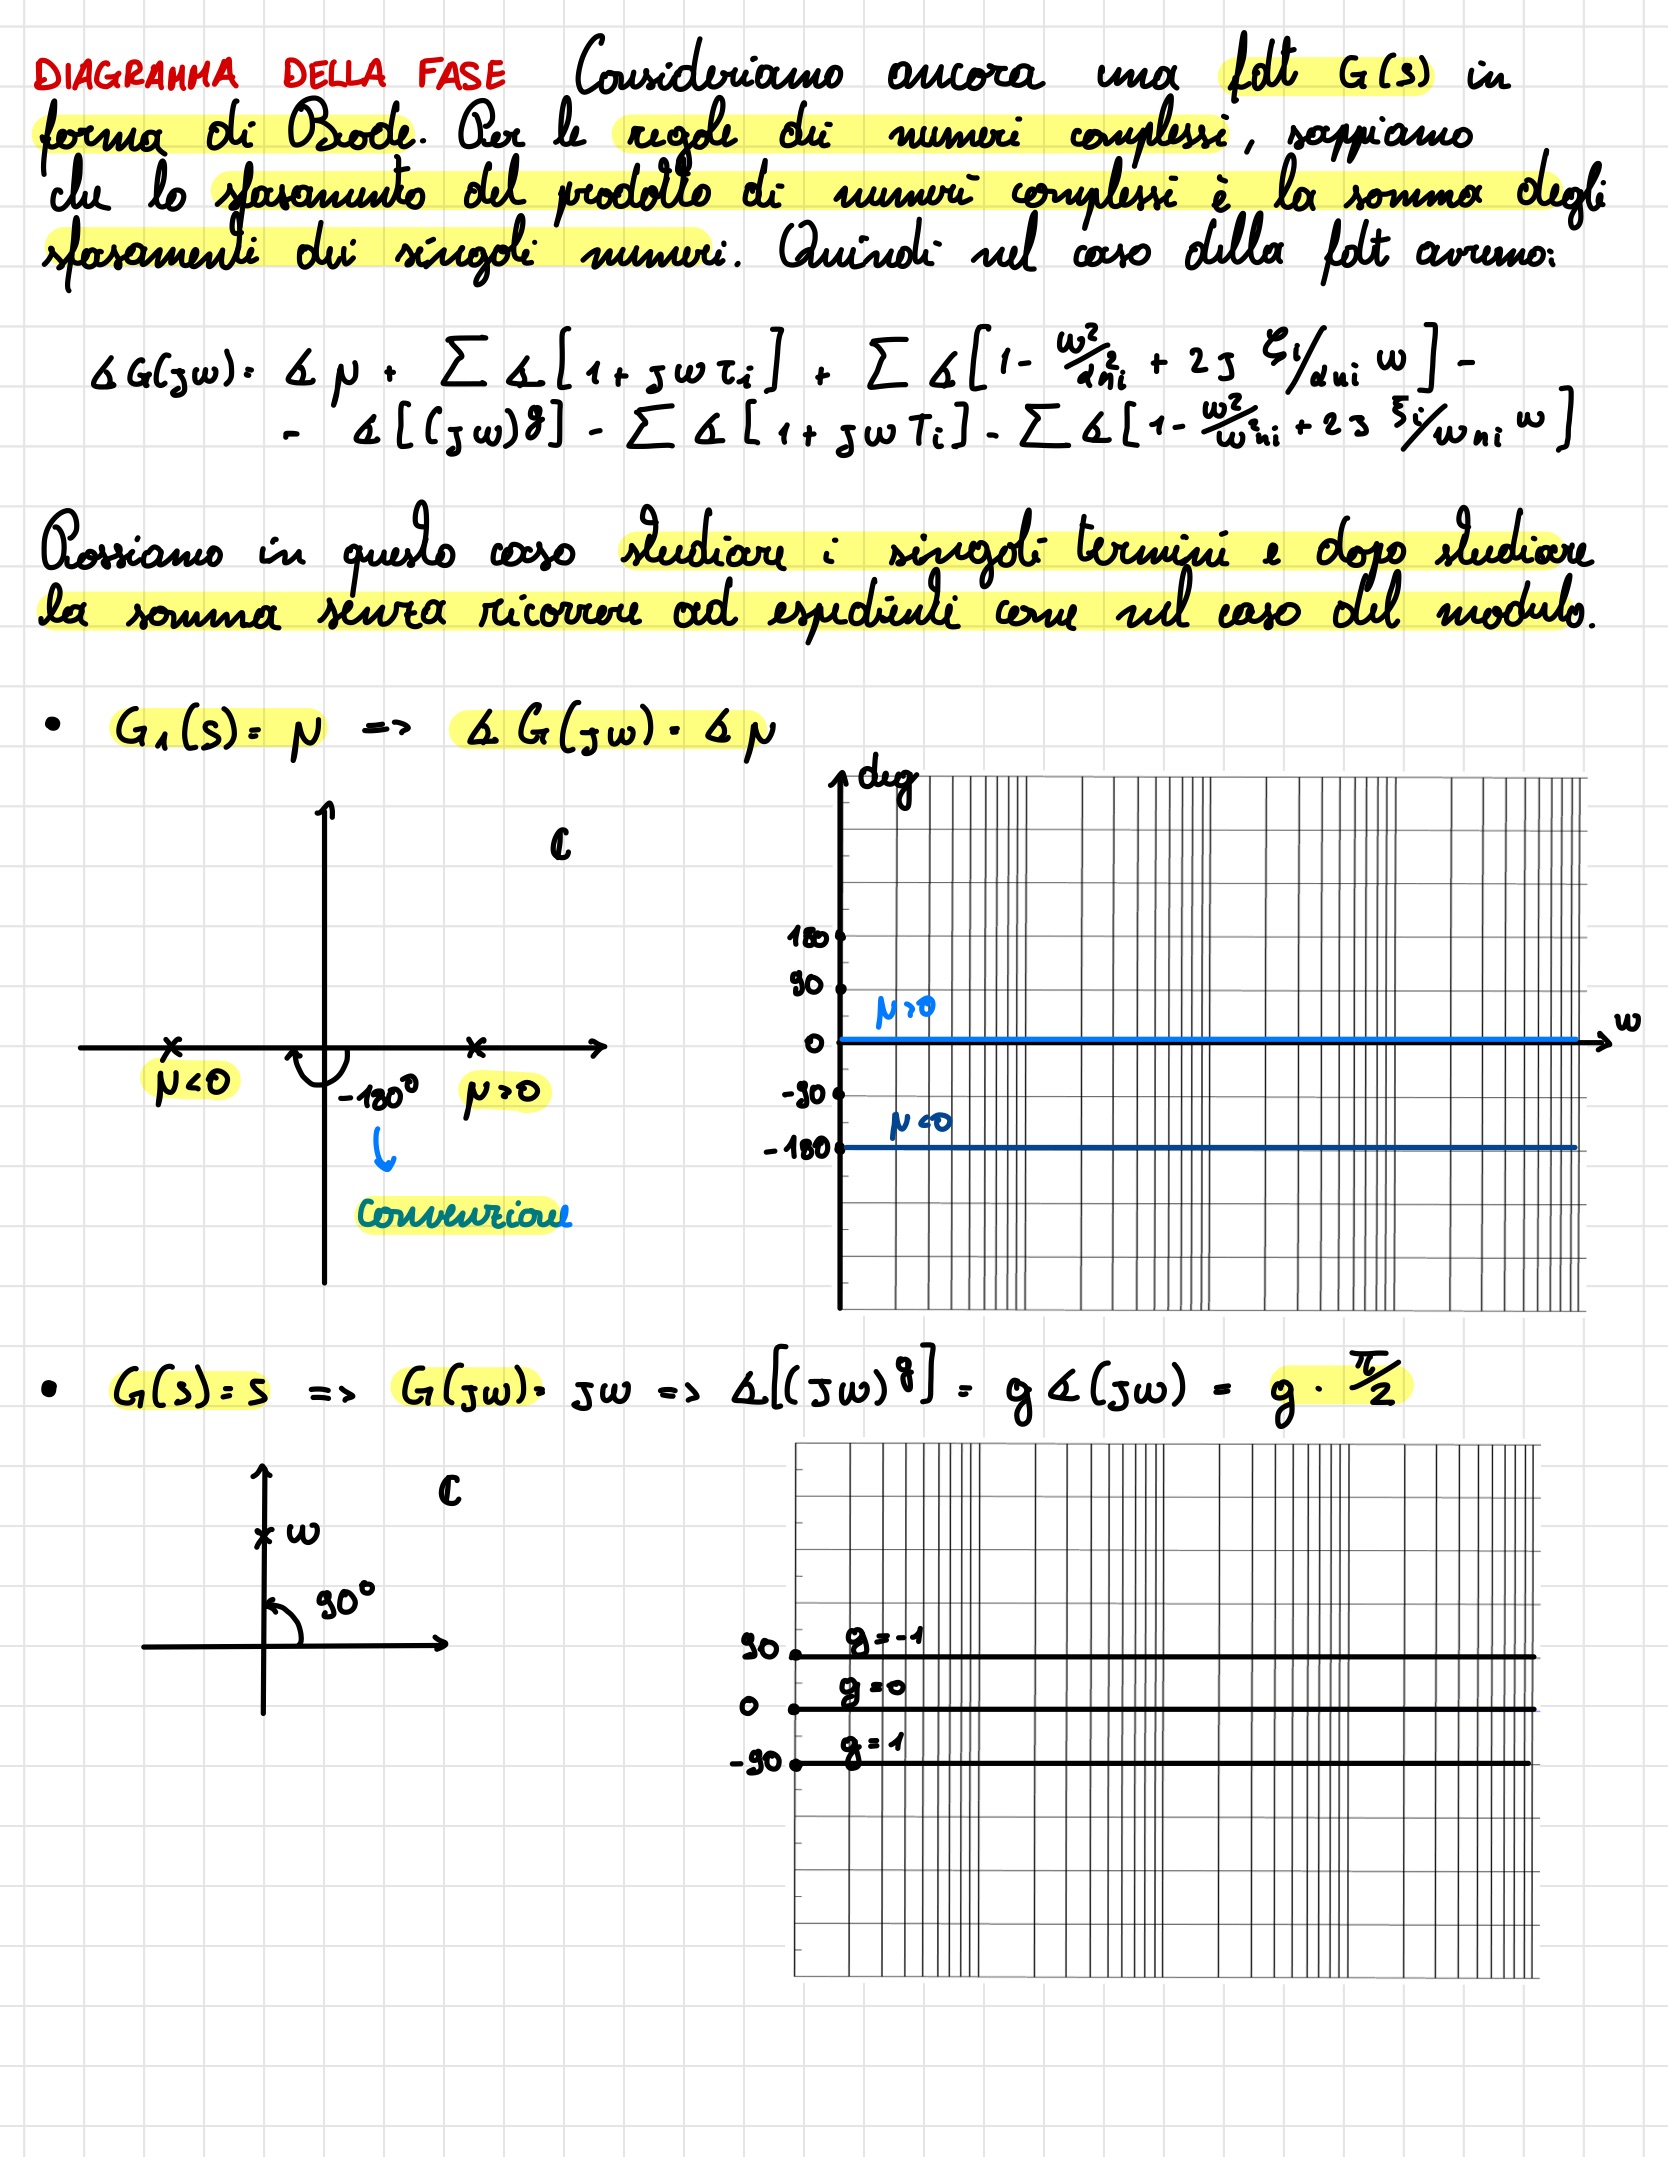 DIAGRAMMA DELLA FASE Consideriamo ancora una fdt G(s) in
forma di Bode. Per le regole dei numeri complessi, sappiamo
che lo sfasamento del prodotto di numeri complessi è la somma degli
sfasamenti dei singoli numeri. Quindi nel caso della fdt avremo:
∡G(jω)= ∡ μ + ∑ ∡[1+jωτi] + ∑ ∡[1-ω²/αni² + 2j ζi/αni ω] -
- ∡[(jω)^g] - ∑ ∡[1+jωTi] - ∑ ∡[1-ω²/ω²ni + 2j ξi/ωni ω]
Possiamo in questo caso studiare i singoli termini e dopo studiare
la somma senza ricorrere ad espedienti come nel caso del modulo.
• G1(s)= μ => ∡ G(jω)= ∡ μ
deg
ℂ
180
90
μ>0
0
ω
μ<0
-180°
μ>0
-90
μ<0
-180
Convenzione
• G(s)=s => G(jω)= jω => ∡[(jω)^g] = g ∡(jω) = g · π/2
ℂ
ω
90°
90
g=-1
0
g=0
-90
g=1